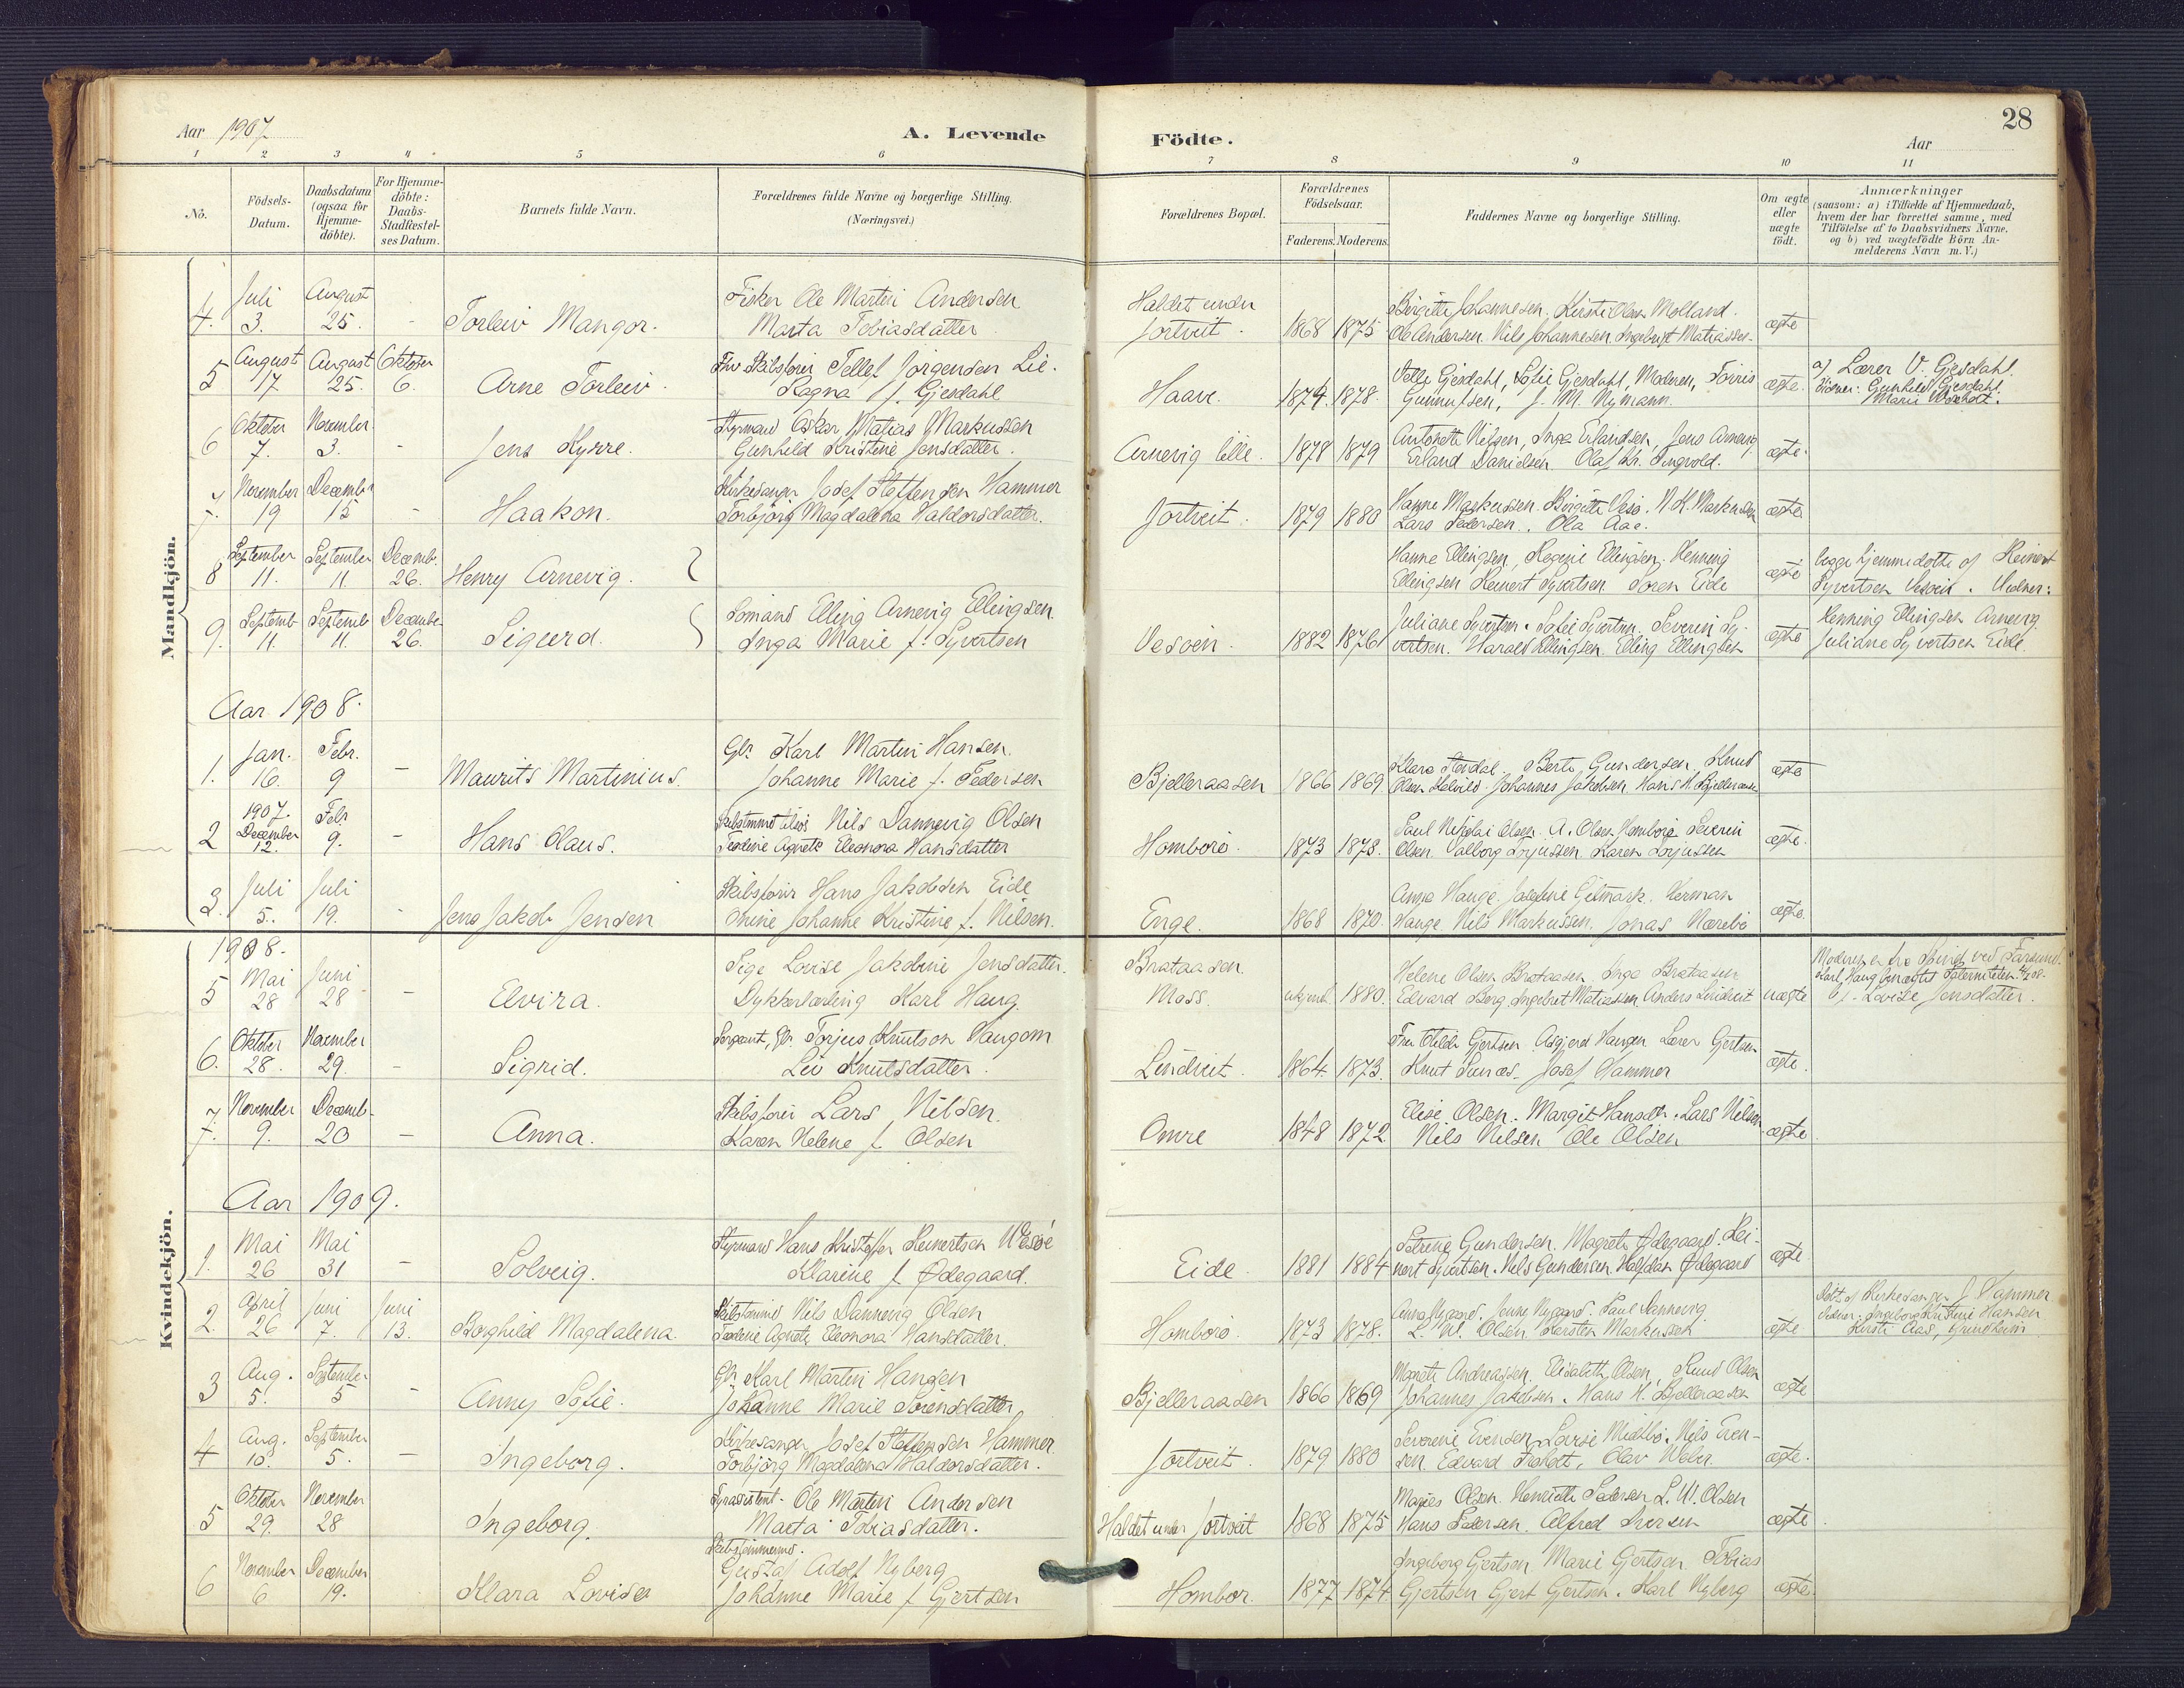 28
Aar 1907
A. Levende Födte.
Aar
1 2 3 4 5 6 7 8 9 10 11
No.
Födsels-Datum.
Daabsdatum (ogsaa for Hjemme-döbte).
For Hjemme-döbte: Daabs-Stadfæstel-ses Datum.
Barnets fulde Navn.
Forældrenes fulde Navne og borgerlige Stilling. (Næringsvei.)
Forældrenes Bopæl.
Forældrenes Födselsaar.
Faderens. Moderens.
Faddernes Navne og borgerlige Stilling.
Om ægte eller uægte födt.
Anmærkninger
(saasom: a) i Tilfælde af Hjemmedaab,
hvem der har forrettet samme, med
Tilföielse af to Daabsvidners Navne,
og b) ved uægtefödte Börn An-
melderens Navn m. V.)
Mandkjön.
4. Juli 3. August 25. - Torleiv Mangor. Fisker Ole Martin Andersen
Marta Tobiasdatter
Haldet under Jortveit. 1868 1875
Birgitte Johannesen, Kirsti Olsen Molland.
Ole Andersen. Nils Johannesen. Ingebret Matiassen. ægte
5 August 17. August 25. Oktober 6. Arne Torleiv. Skibsförer Tellef Jörgensen Lie.
Ragna f. Gjesdahl
Haave. 1874. 1878.
Gjesdahl, Sofie Gjesdahl, Moderen, Torris
Gunnufsen, J. M. Nymann. ægte.
a) Lærer V. Gjesdahl.
Vidner: Gunhild Gjesdahl.
6 Oktober 7. November 3. - Jens Kyrre. Styrmand Oskar Matias Markussen
Gunhild Kristine Jensdatter.
Arnevig lille. 1878 1879
Antonette Nilsen, Inga Erlandsen, Jens Arnevig,
Erland Danielsen. Olaf Kr. Tingvold. ægte.
7. November 19 December 15 - Haakon. Kirkesanger Josef Steffensen Hammer
Torbjörg Magdalena Haldorsdatter.
Jortveit. 1879 1880
Hanne Markussen. Birgitte N. K. Markussen
Lars Pedersen. Ola Aae. ægte
8 September 11. September 11 Decemb. 26. Henry Arnevig.
Hanne Ellingsen, Regine Ellingsen, Henning
Ellingsen Reinert Syvertsen. Sören Eide ægte
begge hjemmedöbte af Reinert
Syvertsen Vesöen. Vidner:
9. Septemb 11. Septemb 11. Decembe 26. Sigurd. Sömand Elling Arnevig Ellingsen.
Inga Marie f. Syvertsen
Vesöen. 1882 1876
Juliane Syvertsen. Sofie Syvertsen. Severin Sy-
vertsen. Harald Ellingsen. Elling Ellingsen ægte
Henning Ellingsen Arnevig
Juliane Syvertsen Eide.
Aar 1908.
1. Jan. 16. Febr. 9 - Maurits Martinius. Gbr. Karl Martin Hansen.
Johanne Marie f. Pedersen
Bjelleraasen 1866 1869
Klara Berte Gundersen, Knud
Olsen Johannes Jakobsen. Hans H. Bjelleraasen ægte
2 1907. December 12. Febr 9. - Hans Olaus. Nils Dannevig Olsen
Teodine Agnete Eleonora Hansdatter
Homborö. 1873 1878.
Paul Nikolai Olsen. A. Olsen Homborö Severin
Olsen. Valborg Torjussen. Karen Torjussen ægte.
3. Juli 5. Juli 19. - Jens Jakob Jensen Skibsförer Hans Jakobsen Eide
Johanne Kristine f. Nilsen.
Enge. 1868 1870.
Anna Hauge. Josefine Herman
Hauge. Nils Markussen. Jonas Nærebö ægte.
Kvindekjön.
1908.
5 Mai 28 Juni 28 - Elvira. Pige Lovise Jakobine Jensdatter.
Dykkerlærling Karl Haug
Brataasen
Moss. ukjendt 1880.
Helene Olsen Brataasen Inga Brataasen
Edvard Berg. Ingebret Matiassen. Anders Lindtveit uægte
Moderen er fra Spind ved Farsund.
Karl Haug benægtet Paterniteten
b) Lovise Jensdatter.
6. Oktober 28. November 29. - Sigrid. Sergeant, Gbr. Torjus Knutson Haugom
Liv Knutsdatter.
Lindtveit. 1864. 1873.
Fru Gjertsen. Asgjerd Haugen Lærer Gjertsen
Knut Josef Hammer ægte.
7. November 9. Decemb. 20 - Anna. Skibsförer Lars Nilsen.
Karen Helene f. Olsen
Omre 1848 1872
Elise Olsen. Margit Hansdtr. Lars Nilsen
Nils Nilsen Ole Olsen ægte
Aar 1909.
1. Mai 26 Mai 31 - Solveig. Styrmand Hans Kristoffer Reinertsen Vesöe
Klarine f Ødegaard.
Eide. 1881 1884
Petrine Gundersen. Magrete Ødegaard. Rei-
nert Syvertsen. Nils Gundersen. Halfdan Ødegaard ægte.
2. April 26 Juni 7. Juni 13. Borghild Magdalena. Skibstömmermd Nils Dannevig Olsen
Teodine Agnete Eleonora Hansdatter.
Homborö. 1873 1878.
Anna Nygaard. Jenne Nygaard. Paul Dannevig.
L. W. Olsen. Karsten Markussen ægte
Döbt af Kirkesanger J Hammer
Vidner: Ingeborg Kristine Hansen
Kirsti Aas, Grindheim
3 Aug. 5. September 5 - Anny Sofie. Gbr. Karl Martin Hansen
Johanne Marie Sörensdatter
Bjelleraasen 1866 1869
Magrete Andreassen. Elisabeth Olsen, Knud Olsen
Johannes Jakobsen. Hans H. Bjelleraasen ægte
4 Aug. 10. September 5. - Ingeborg. Kirkesanger Josef Steffensen Hammer.
Torbjörg Magdalena Haldorsdatter.
Jortveit. 1879 1880
Severine Evensen Lovise Midtbö. Nils Even-
sen. Edvard Olav Weber. ægte.
5 Oktober 29. November 28 Ingeborg. Fyrassistent. Ole Martin Andersen
Marta Tobiasdatter.
Haldet under Jortveit 1868 1875
Olsen. Henriette Pedersen L. W. Olsen
Hans Pedersen. Alfred Iversen ægte.
6 November 6 December 19. Klara Lovise Skibstömmermd.
Gustaf Adolf Nyberg
Johanne Marie f Gjertsen
Hombor. 1877 1874
Ingeborg Gjertsen Marie Gjertsen Tobias
Gjertsen Gjert Gjertsen. Karl Nyberg ægte.